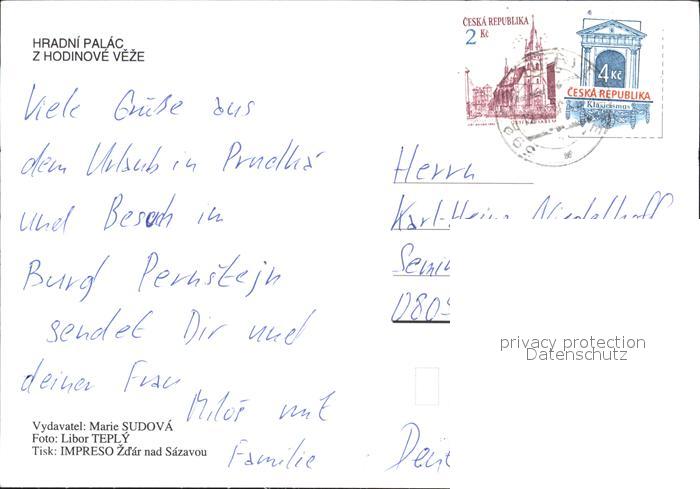 HRADNÍ PALÁC
Z HODINOVÉ VĚŽE
ČESKÁ REPUBLIKA
2 Kč
4 Kč
ČESKÁ REPUBLIKA
Klasicismus
Viele Grüße aus
dem Urlaub in Prudká
und Besuch in
Burg Pernštejn
sendet Dir und
deiner Frau
Miloš mit
Familie
Herrn
Karl-Heinz
0809
privacy protection
Datenschutz
Vydavatel: Marie SUDOVÁ
Foto: Libor TEPLÝ
Tisk: IMPRESO Žďár nad Sázavou